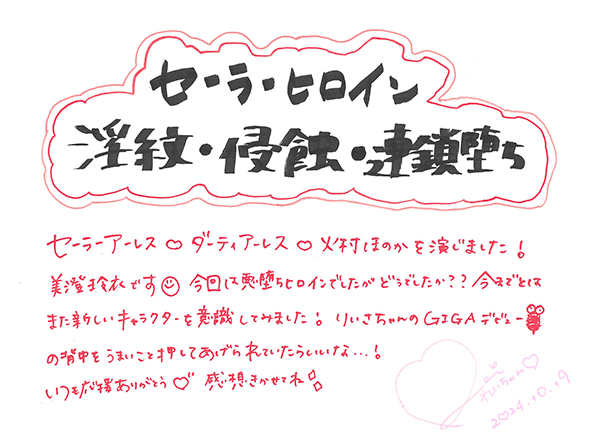 セーラーヒロイン
淫紋・侵蝕・連鎖堕ち
セーラーアーレス♡ダーティアーレス♡火村ほのかを演じました!
美澄玲衣です 今回は悪堕ちヒロインでしたがどうでしたか??今までとは
また新しいキャラクターを意識してみました!りいさちゃんのGIGAデビュー
の背中をうまいこと押してあげられていたらいいな…!
いつも応援ありがとう♡ 感想きかせてね
れいちゃん♡
2024.10.19